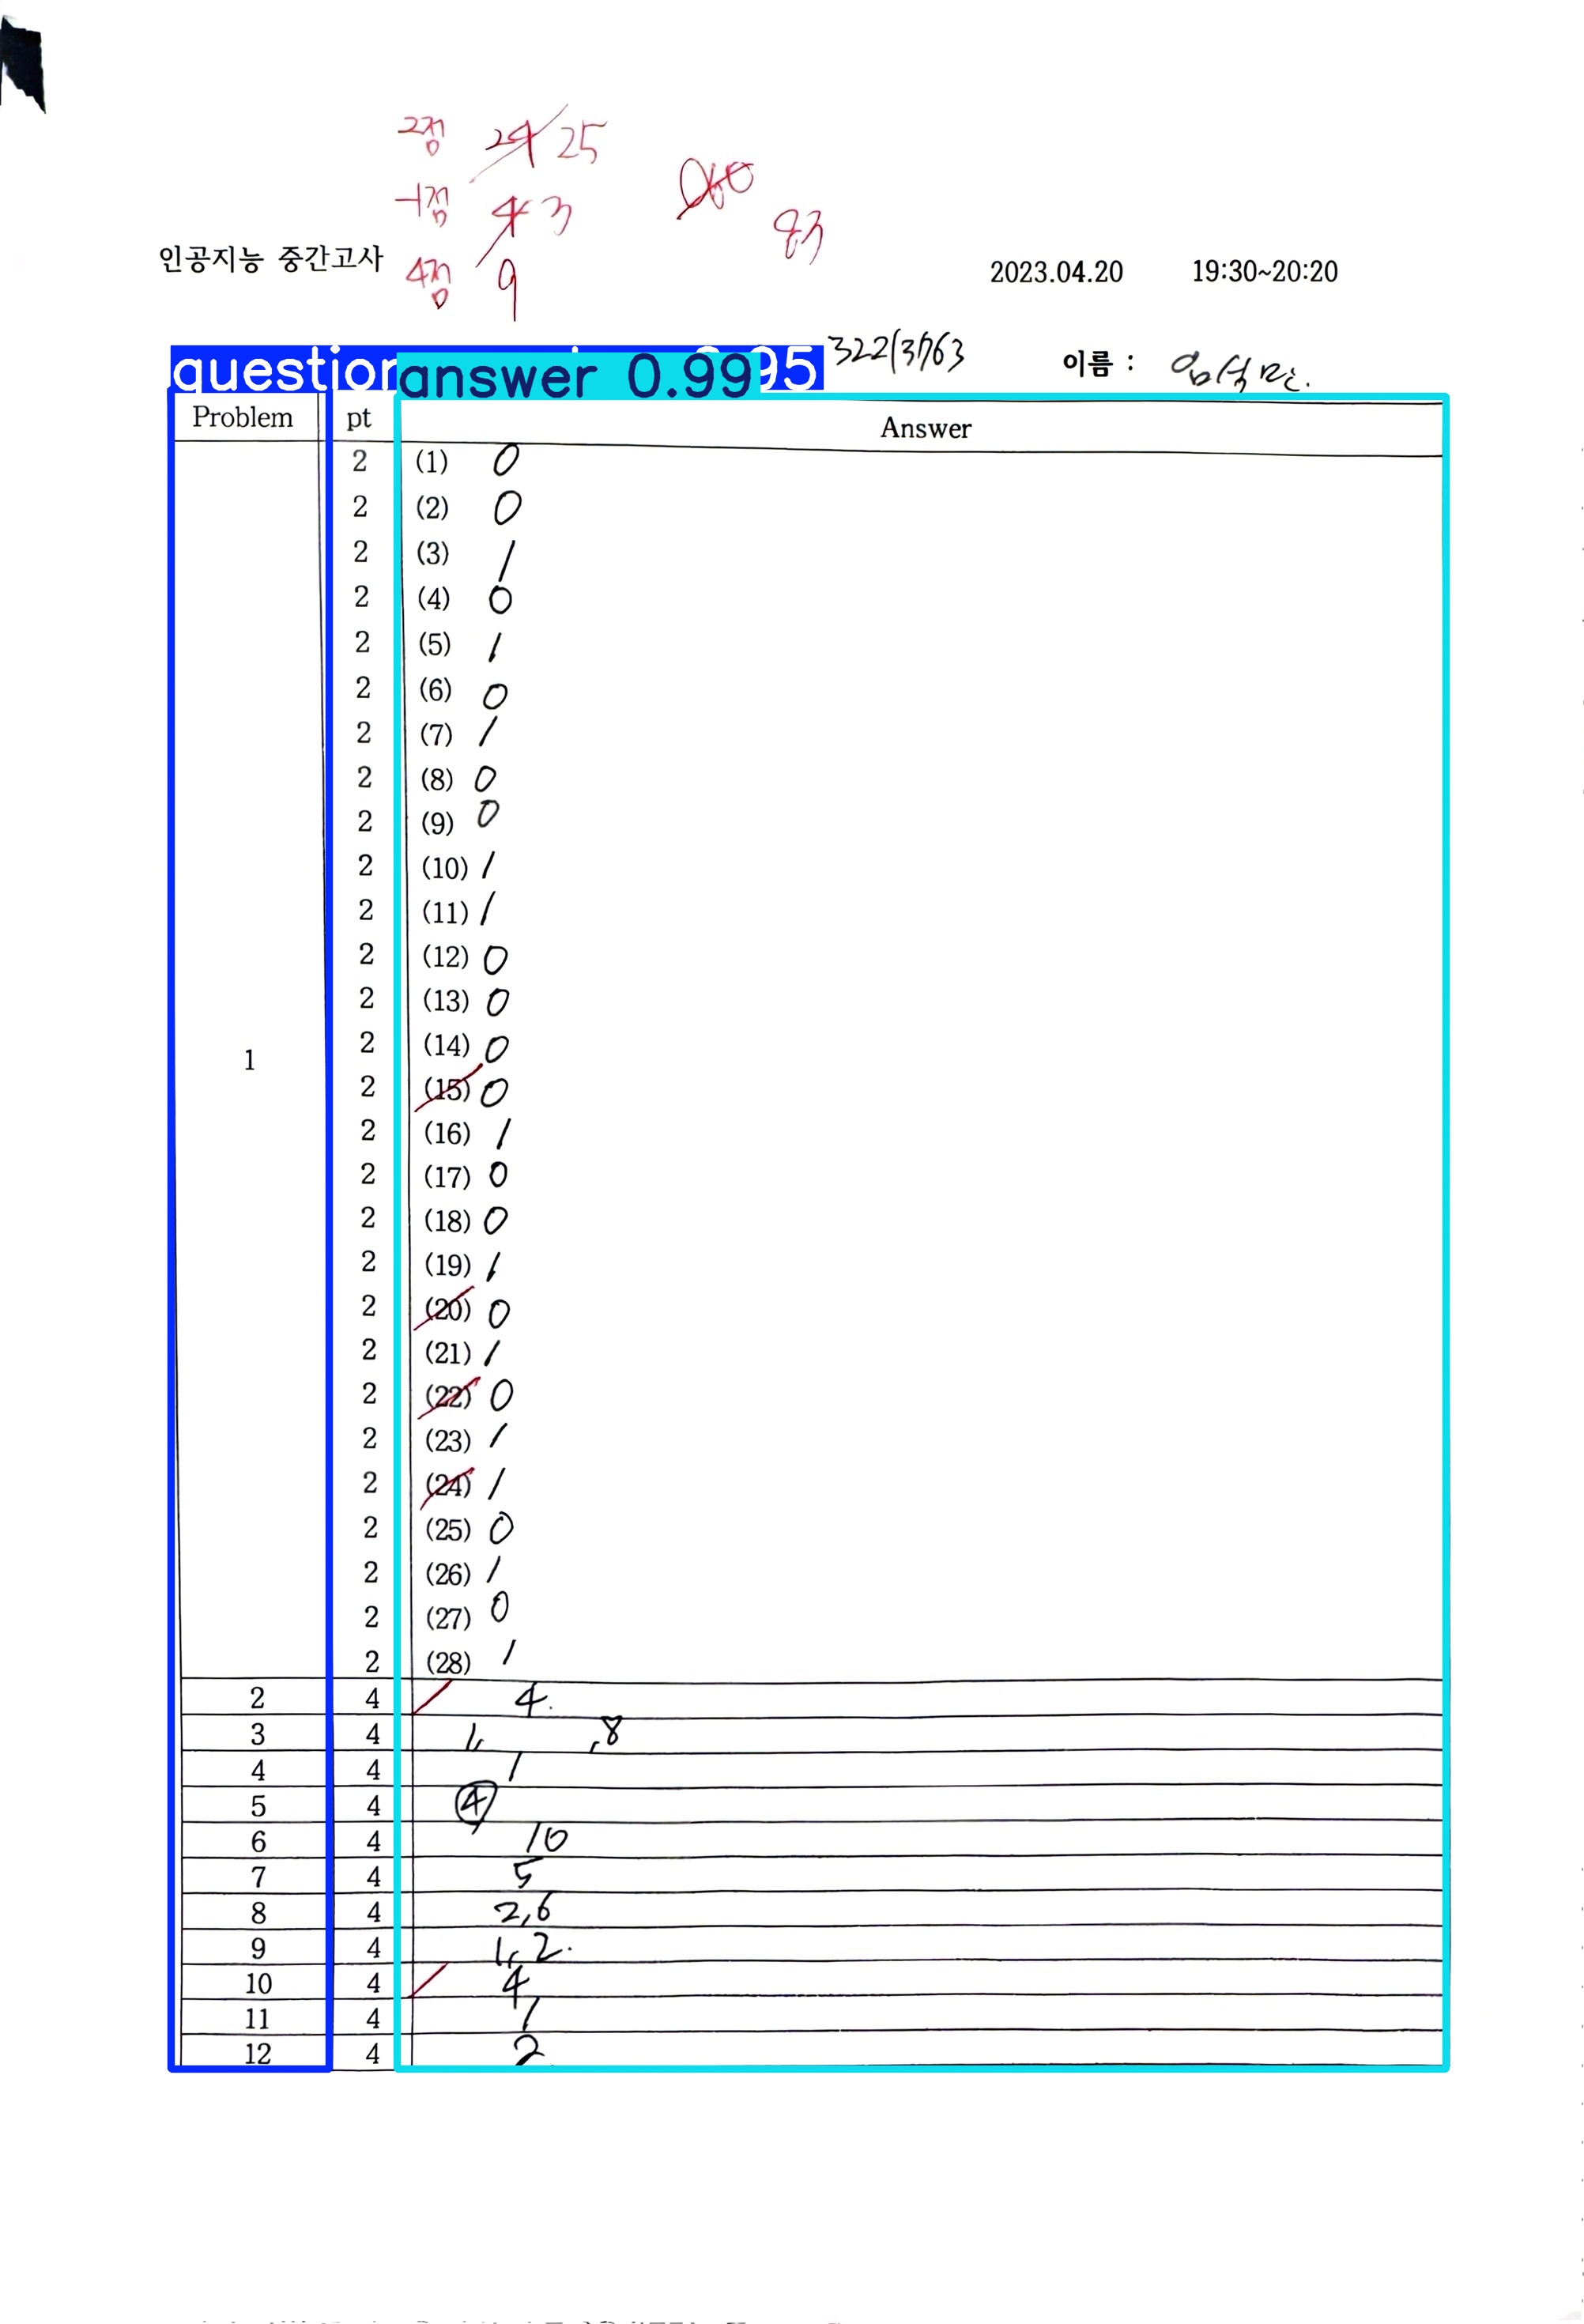 2점 24 25
-1점 4 3
83
인공지능 중간고사 4점 9
2023.04.20 19:30~20:20
answer 0.99 95 32213763 이름 :
Problem pt Answer
2 (1) 0
2 (2) 0
2 (3) 1
2 (4) 0
2 (5) 1
2 (6) 0
2 (7) 1
2 (8) 0
2 (9) 0
2 (10) 1
2 (11) 1
2 (12) 0
2 (13) 0
2 (14) 0
1
2 (15) 0
2 (16) 1
2 (17) 0
2 (18) 0
2 (19) 1
2 (20) 0
2 (21) 1
2 (22) 0
2 (23) 1
2 (24) 1
2 (25) 0
2 (26) 1
2 (27) 0
2 (28) 1
2 4 4.
3 4 1, ,8
4 4 1
5 4 ④
6 4 10
7 4 5
8 4 2,6
9 4 1, 2.
10 4 4
11 4 1
12 4 2